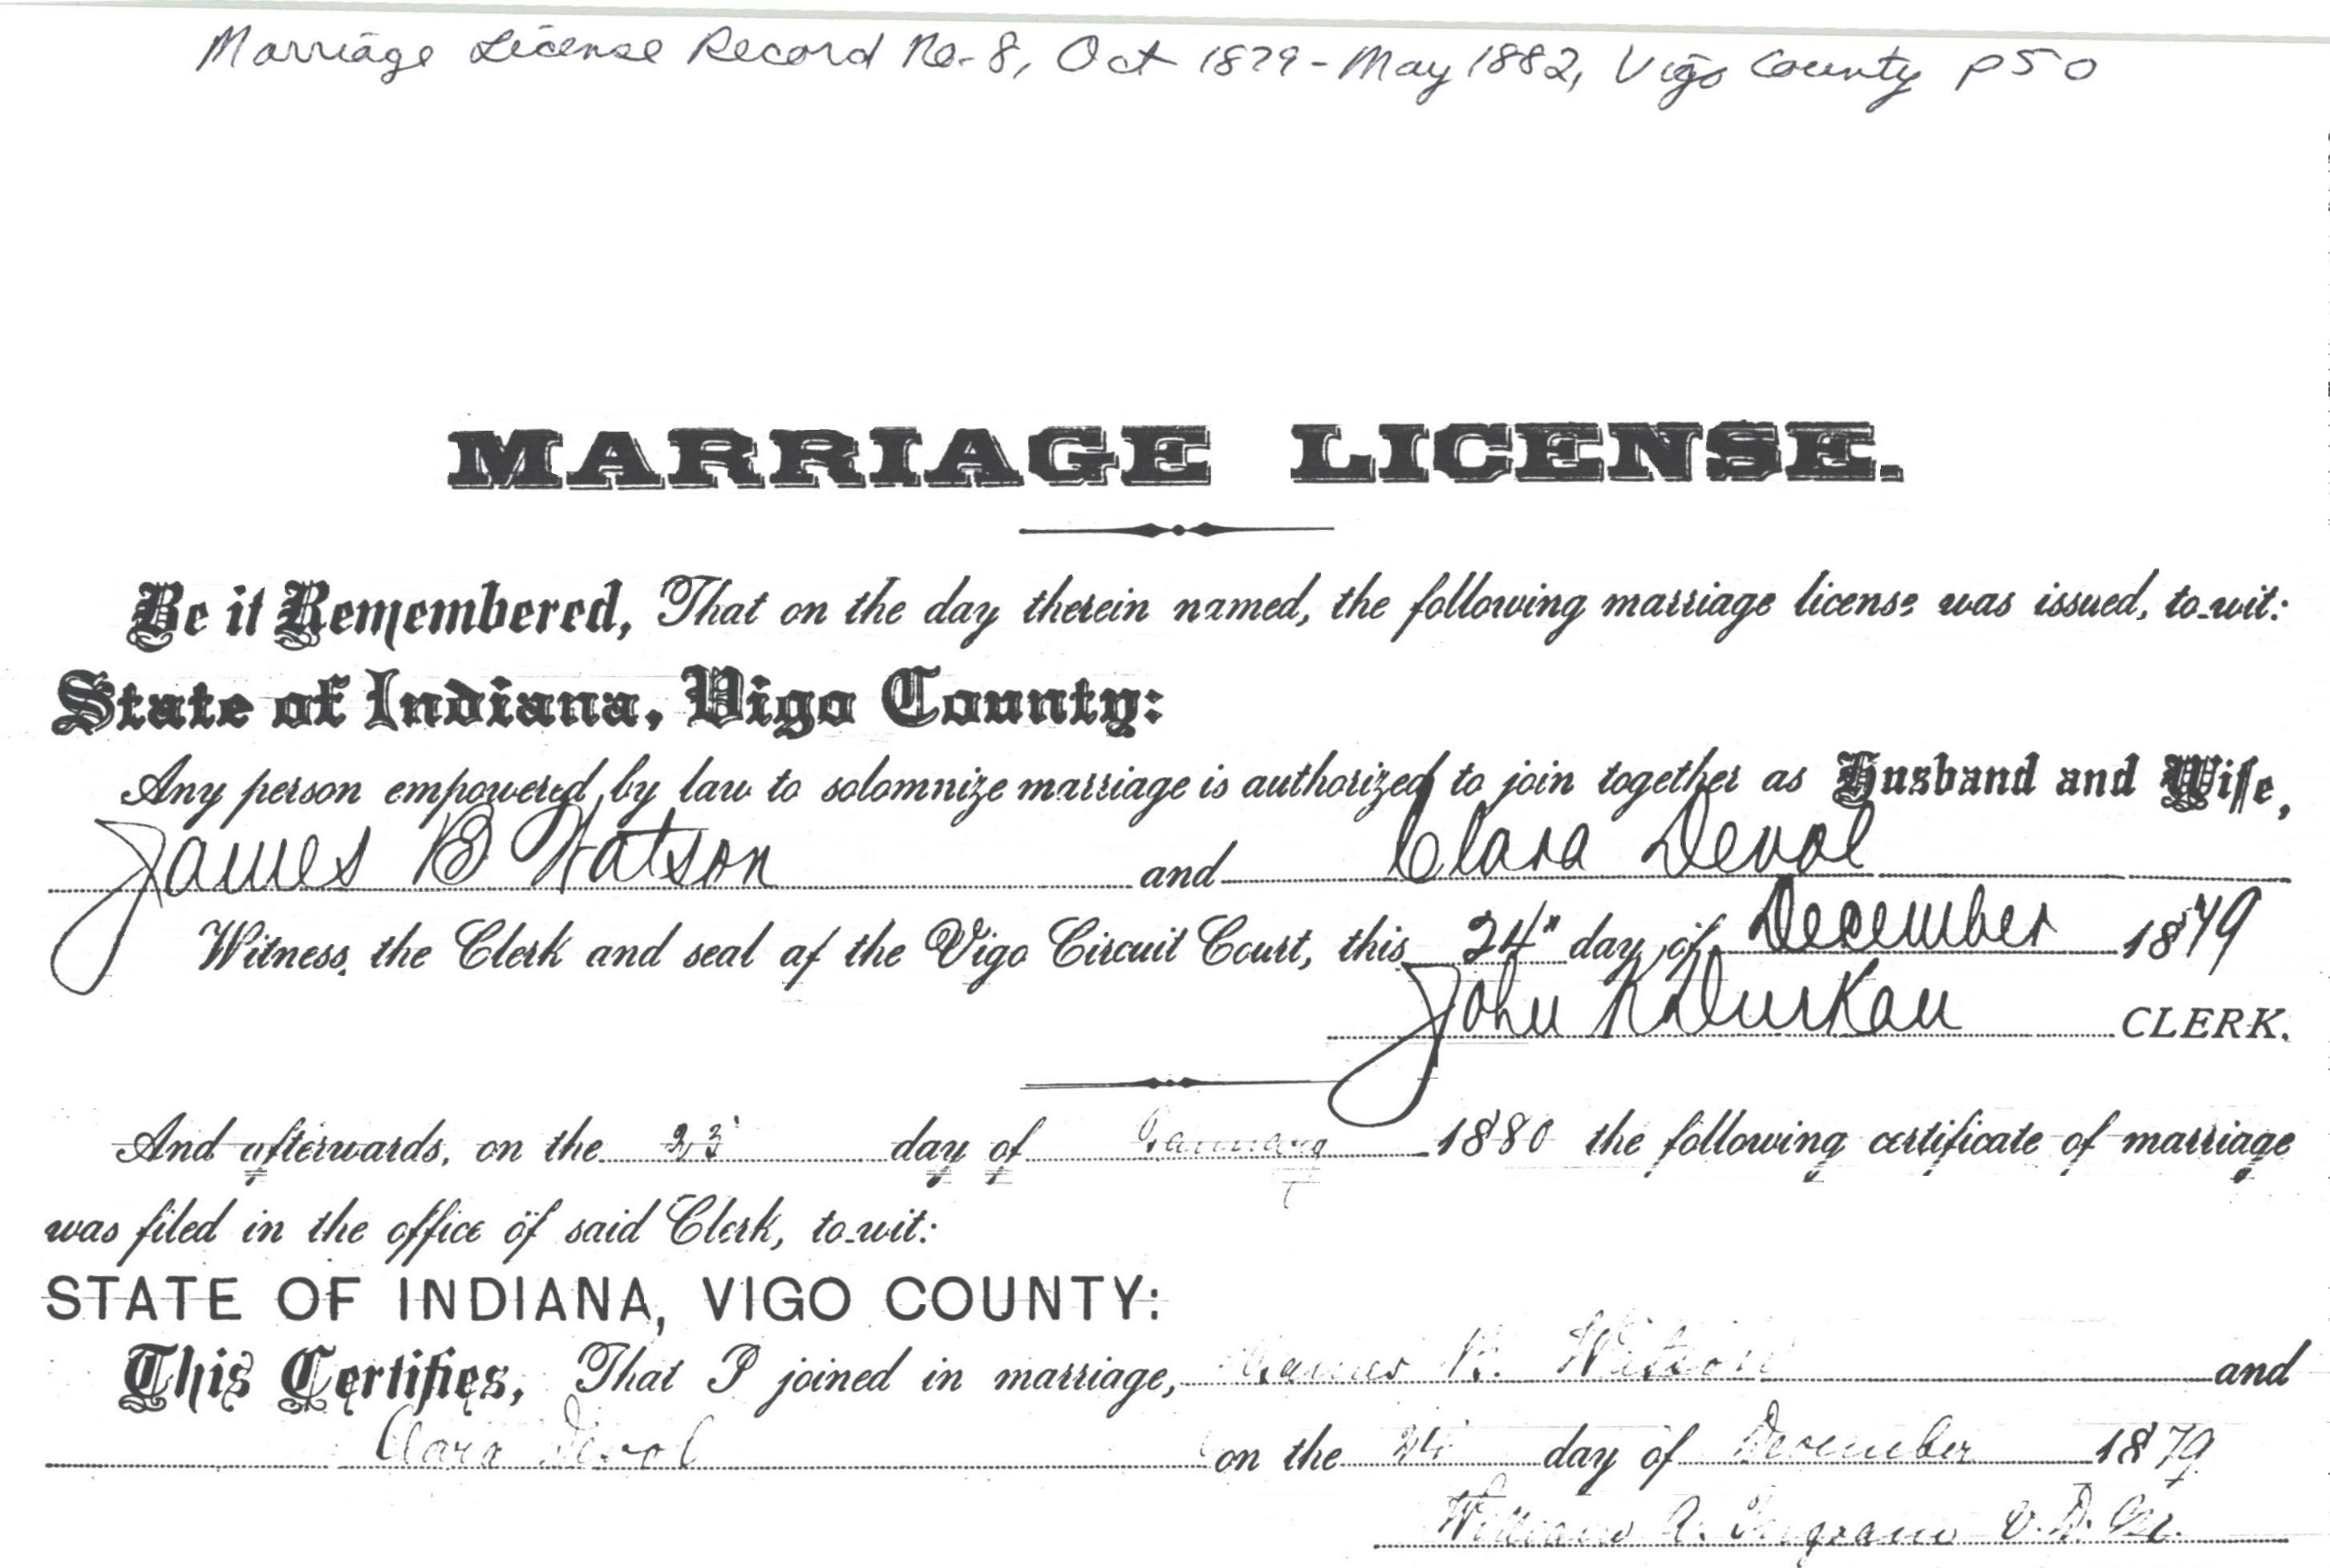 Marriage License Record No. 8, Oct 1879 - May 1882, Vigo County p50
MARRIAGE LICENSE.
Be it Remembered, That on the day therein named, the following marriage license was issued, to-wit:
State of Indiana, Vigo County:
Any person empowered by law to solomnize marriage is authorized to join together as Husband and Wife,
James B Watson and Clara Devol
Witness, the Clerk and seal af the Vigo Circuit Court, this 24" day of December 1879
John K Durkan CLERK.
And afterwards, on the 23 day of January 1880 the following certificate of marriage
was filed in the office of said Clerk, to-wit:
STATE OF INDIANA, VIGO COUNTY:
This Certifies, That I joined in marriage, James B. Watson and
Clara Devol on the 24 day of December 1879
William A. V. D. M.